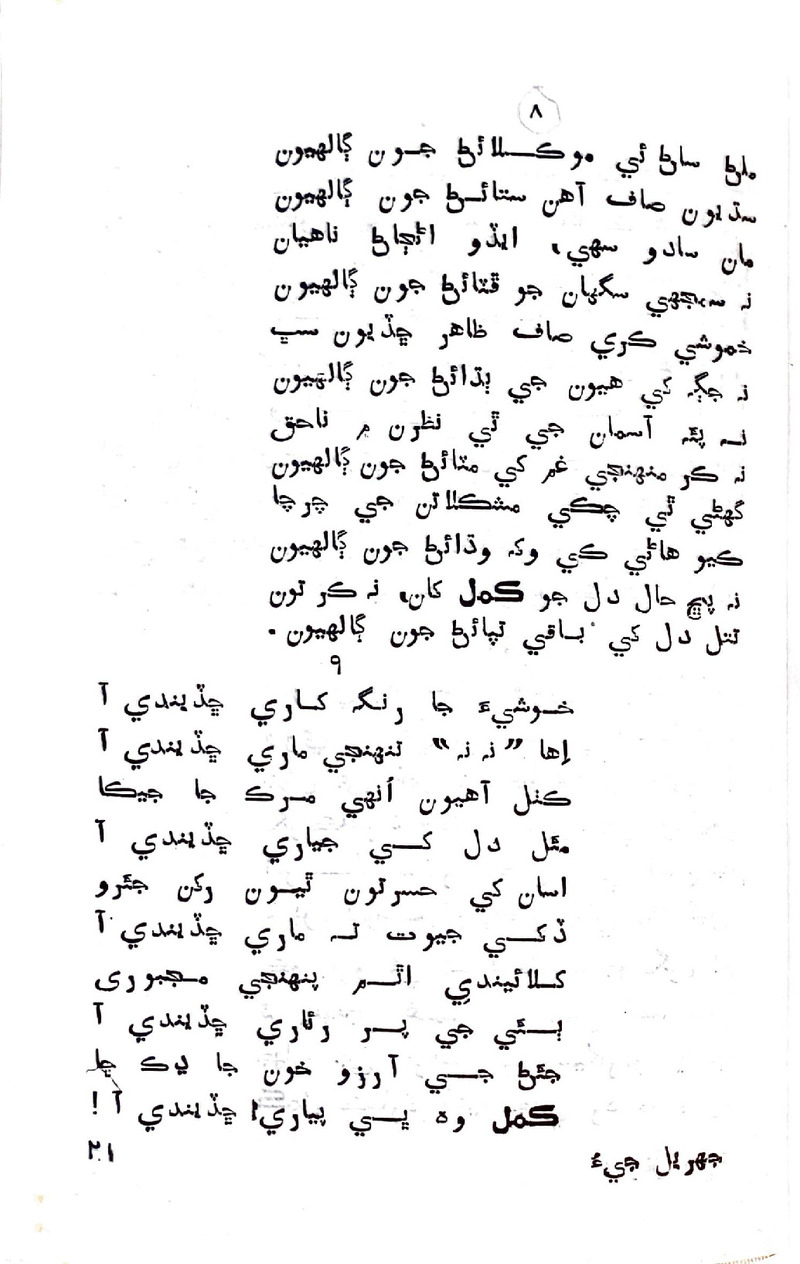 ٨
ملڻ ساڻ ئي موڪلائڻ جون ڳالهيون
سڌيون صاف آهن ستائڻ جون ڳالهيون
مان سادو سهي، ايڏو اڻڄاڻ ناهيان
نہ سمجهي سگهان جو ڦٽائڻ جون ڳالهيون
خموشي ڪري صاف ظاهر ڇڏيون سڀ
نہ جڳہ کي هيون جي ٻڌائڻ جون ڳالهيون
نہ پئہ آسمان جي ٿي نظرن ۾ ناحق
نہ ڪر منهنجي غم کي مٽائڻ جون ڳالهيون
گهڻي ٿي چڪي مشڪلاتن جي چرچا
ڪيو هاڻي ڪي وکہ وڌائڻ جون ڳالهيون
نہ پڇ حال دل جو ڪمل کان، نہ ڪر تون
تتل دل کي باقي تپائڻ جون ڳالهيون.
٩
خوشيءَ جا رنگہ ڪاري ڇڏيندي آ
اِها ”نہ نہ“ تنهنجي ماري ڇڏيندي آ
ڪٺل آهيون اُنهي مرڪ جا جيڪا
مئل دل کي جياري ڇڏيندي آ
اسان کي حسرتون ٿيون رکن جئرو
ڏکي جيوت تہ ماري ڇڏيندي آ
کلائيندي اٿم پنهنجي مجبوري
ٻئي جي پر رئاري ڇڏيندي آ
جئڻ جي آرزو خون جا ڍڪ ڇا
ڪمل وہ پي پياري! ڇڏيندي آ!
جهريل جيءُ
٢١